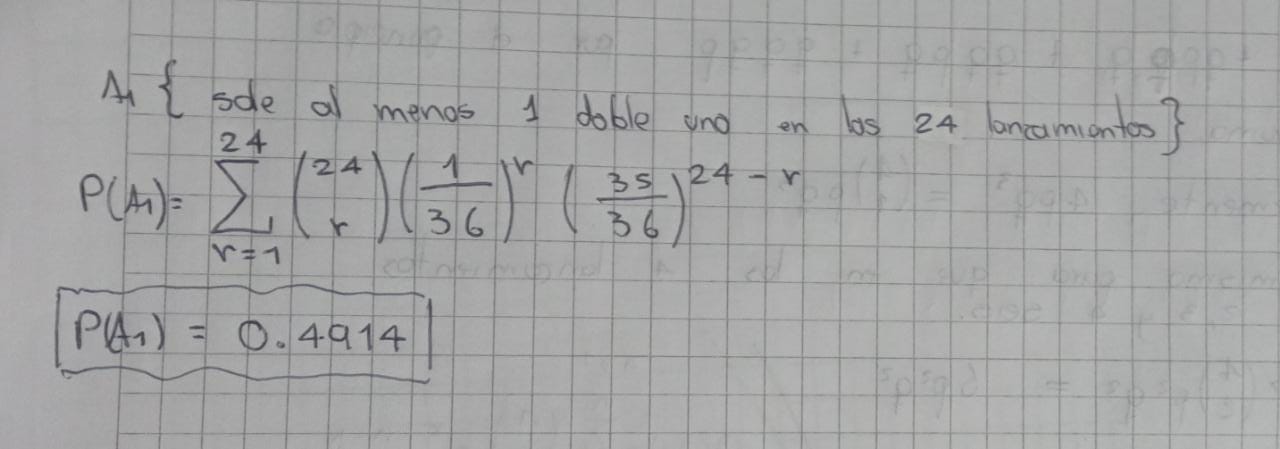 A₁ { sale al menos 1 doble uno en los 24 lanzamientos}
P(A₁)= \sum_{r=1}^{24} \binom{24}{r} \left(\frac{1}{36}\right)^r \left(\frac{35}{36}\right)^{24-r}
P(A₁) = 0.4914